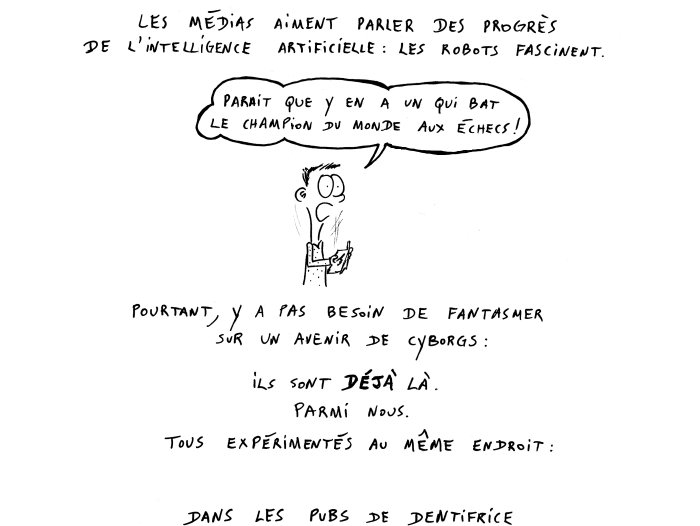 LES MÉDIAS AIMENT PARLER DES PROGRÈS
DE L'INTELLIGENCE ARTIFICIELLE : LES ROBOTS FASCINENT.
PARAIT QUE Y EN A UN QUI BAT
LE CHAMPION DU MONDE AUX ÉCHECS !
POURTANT, Y A PAS BESOIN DE FANTASMER
SUR UN AVENIR DE CYBORGS :
ILS SONT DÉJÀ LÀ.
PARMI NOUS.
TOUS EXPÉRIMENTÉS AU MÊME ENDROIT :
DANS LES PUBS DE DENTIFRICE